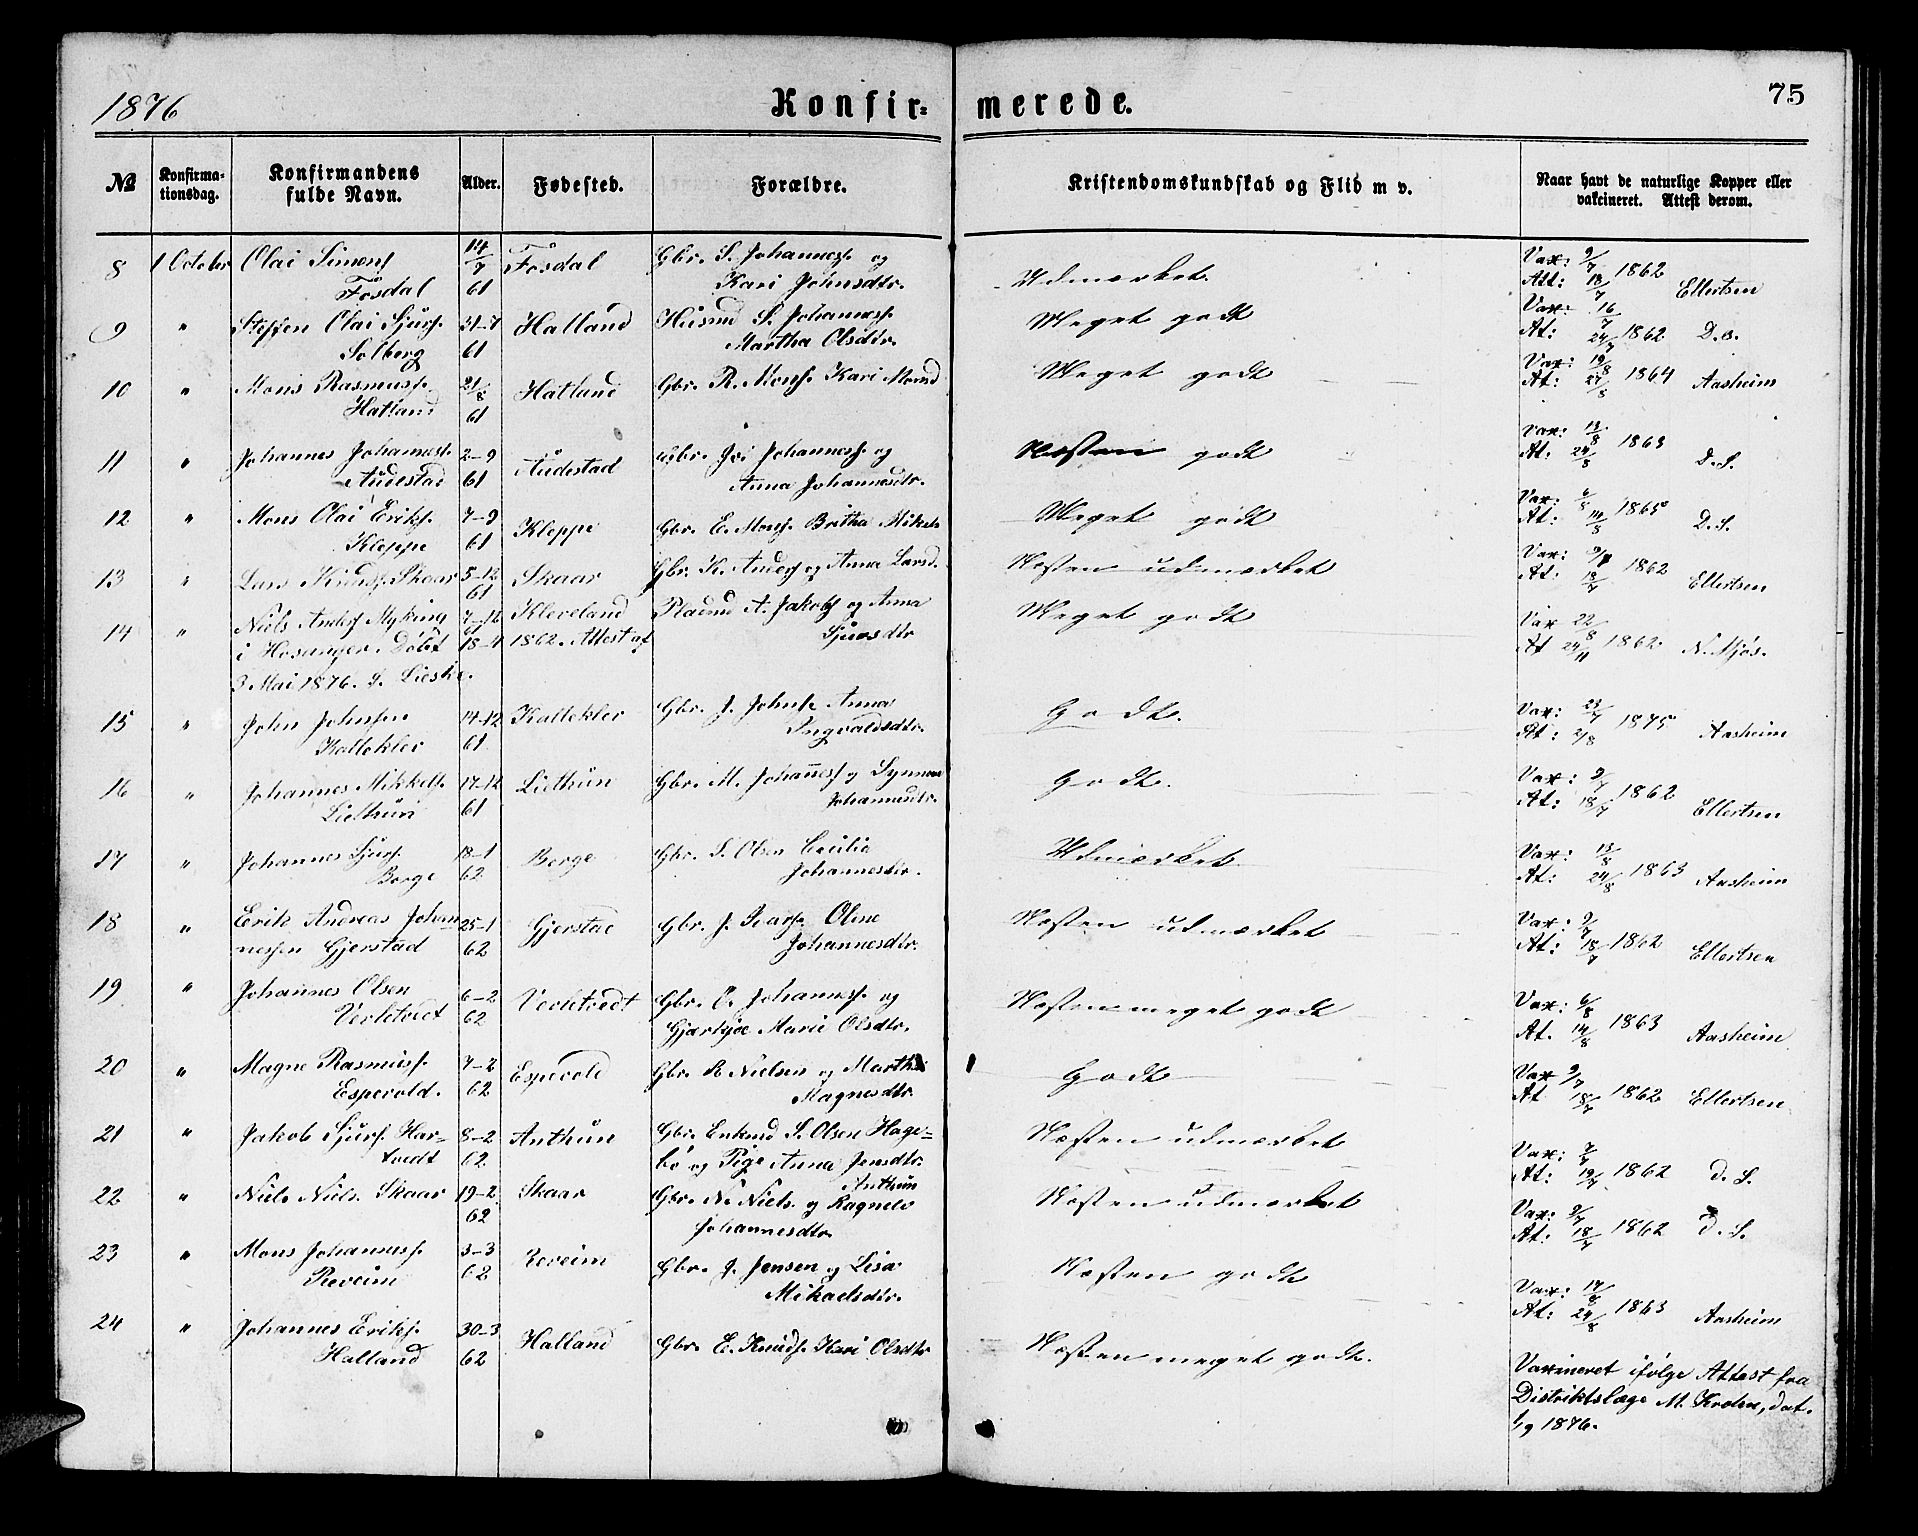 1876
Konfir=
merede.
75
No
Konfirma-
tionsdag.
Konfirmandens
fulde Navn.
Alder.
Fødested.
Forældre.
Kristendomskundskab og Flid m v.
Naar havt de naturlige Kopper eller
vakcineret. Attest derom.
8 1 October Olai Simons. 14/7 Fosdal Gbr. S. Johannes. og Udmærket. Vax: 9/7 1862
Fosdal 61 Kari Johnsdtr. Att: 18/7 Ellertsen
9 " Steffen Olai Sjurs. 31-7 Halland Husmd S. Johannes. Meget godt Vax: 16/7
Solberg 61 Martha Olsdtr. At: 24/7 1862 D.o.
10 " Mons Rasmuss. 21/8 Hatland Gbr. R. Mons. Kari Monsd Meget godt Vax: 19/8 1864
Hatland 61 At: 27/8 Aasheim
11 " Johannes Johanness. 2-9 Audestad Gbr. Johanness. og Næsten godt Vax: 13/8 1863
Audestad 61 Anna Johannesdtr. At: 24/8 D.S.
12 " Mons Olai Eriks. 7-9 Kleppe Gbr. E. Mons. Britha Mikels Meget godt Vax: 6/8 1865
Kleppe 61 At: 14/8 D.S.
13 " Lars Knuds. Skaar 5-12 Skaar Gbr. K. Anders og Anna Larsd. Næsten udmærket Vax: 9/7 1862
61 At: 18/7 Ellertsen
14 " Niels Anders Myking 7-12 Kleveland Pladsmd A. Jakobs og Anna Meget godt Vax 22/8
i Hosanger. Døbt 18-4 1862. Attest af Sjursdtr At 29/11 1862. N. Mjøs.
3 Mai 1876. f. Lieske.
15 " John Johnsen 14-12 Kallekler Gbr. J. Johns. Anna Godt. Vax: 23/7 1875
Kallekler 61 Ingvaldsdtr. At: 2/8 Aasheim
16 " Johannes Mikkels. 17-12 Liethun Gbr. M. Johannes. og Synneva Godt. Vax: 9/7 1862
Liethun 61 Johannesdtr. At: 18/7 Ellertsen
17 " Johannes Sjurs. 18-1 Berge Gbr. S. Olsen Cecilia Udmærket. Vax: 13/8
Berge 62 Johannesdtr. At: 24/8 1863 Aasheim
18 " Erik Andreas Johan 25-1 Gjerstad Gbr. J. Ivars. Oline Næsten udmærket Vax: 9/7
nessen Gjerstad 62 Johannesdtr. At: 18/7 1862 Ellertsen
19 " Johannes Olsen 6-2 Verletvedt Gbr. O. Johanness. og Næsten meget godt Vax: 6/8 1863
Verletvedt 62 Gjertrude Marie Olsdtr. At. 14/8 Aasheim
20 " Magne Rasmuss. 7-2 Espevold Gbr. R Nielsen og Martha Godt Vax 9/7
Espevold. 62 Magnesdtr. At 18/7 1862 Ellertsen
21 " Jakob Sjurs. Har- 8-2 Anthun Gbr. Enkmd S. Olsen Hage= Næsten udmærket Vax: 7/7
tvedt 62 bø og Pige Anna Jensdtr. At: 19/7 1862 d. S.
Anthun
22 " Niels Niels. Skaar 19-2 Skaar Gbr. N. Niels. og Ragnele Næsten udmærket Vax: 9/7
62 Johannesdtr. At: 18/7 1862 d. S.
23 " Mons Johanness. 3-3 Reveim Gbr. J. Jensen og Lisa Næsten godt Vax: 14/8
Reveim 62 Mikaelsdtr. At: 24/8 1863 Aasheim
24 " Johannes Eriks. 30-3 Halland Gbr. E. Knuds. Kari Olsdtr Næsten meget godt.
Halland 62 Vaxineret ifølge Attest fra
Distriktslæge M. Krohn, dat.
1/9 1876.